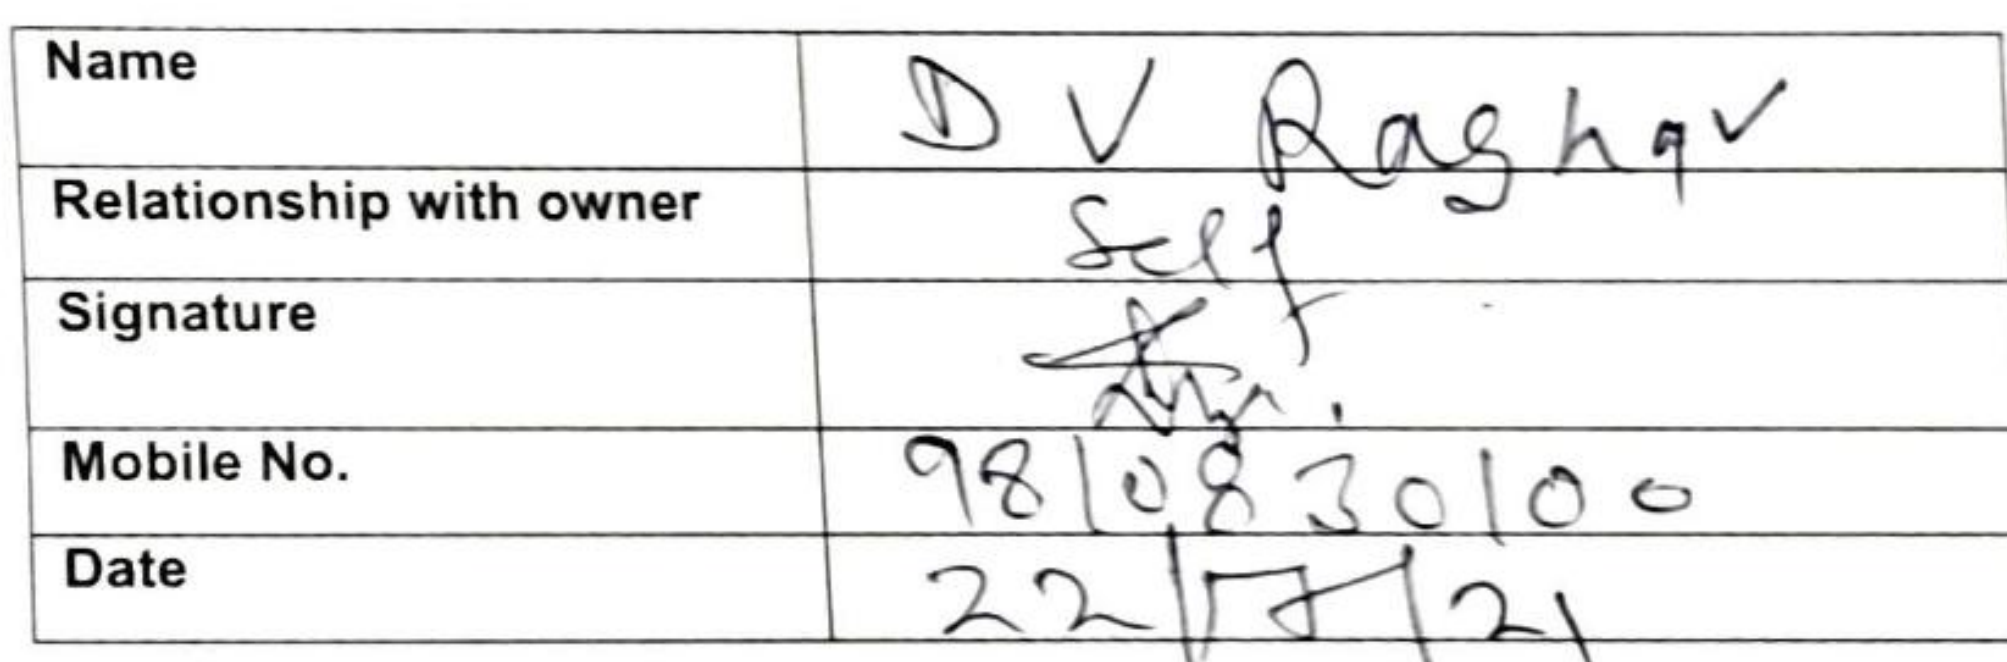 Name D V Raghav
Relationship with owner Self
Signature
Mobile No. 9810830100
Date 22/ /21